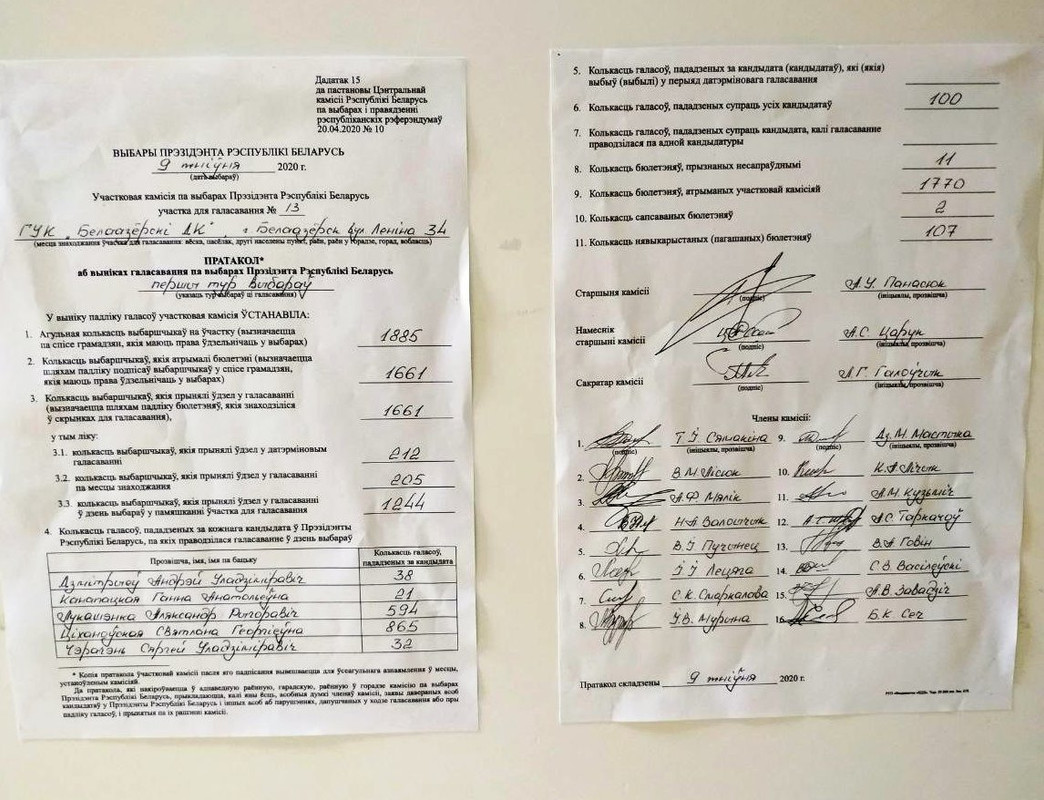 Дадатак 15
да пастановы Цэнтральнай
камісіі Рэспублікі Беларусь
па выбарах і правядзенні
рэспубліканскіх рэферэндумаў
20.04.2020 № 10
ВЫБАРЫ ПРЭЗІДЭНТА РЭСПУБЛІКІ БЕЛАРУСЬ
9 жніўня 2020 г.
(дата выбараў)
Участковая камісія па выбарах Прэзідэнта Рэспублікі Беларусь
участка для галасавання № 13
ГУК "Белаазёрскі ДК", г. Белаазёрск вул Леніна 34
(месца знаходжання ўчастка для галасавання: вёска, пасёлак, другі населены пункт, раён, раён у горадзе, горад, вобласць)
ПРАТАКОЛ*
аб выніках галасавання па выбарах Прэзідэнта Рэспублікі Беларусь
першы тур выбараў
(указаць тур выбараў ці галасавання)
У выніку падліку галасоў участковая камісія ЎСТАНАВІЛА:
1. Агульная колькасць выбаршчыкаў на ўчастку (вызначаецца
па спісе грамадзян, якія маюць права ўдзельнічаць у выбарах) 1885
2. Колькасць выбаршчыкаў, якія атрымалі бюлетэні (вызначаецца
шляхам падліку подпісаў выбаршчыкаў у спісе грамадзян,
якія маюць права ўдзельнічаць у выбарах) 1661
3. Колькасць выбаршчыкаў, якія прынялі ўдзел у галасаванні
(вызначаецца шляхам падліку бюлетэняў, якія знаходзіліся
ў скрынках для галасавання), 1661
у тым ліку:
3.1. колькасць выбаршчыкаў, якія прынялі ўдзел у датэрміновым
галасаванні 212
3.2. колькасць выбаршчыкаў, якія прынялі ўдзел у галасаванні
па месцы знаходжання 205
3.3. колькасць выбаршчыкаў, якія прынялі ўдзел у галасаванні
ў дзень выбараў у памяшканні ўчастка для галасавання 1244
4. Колькасць галасоў, пададзеных за кожнага кандыдата ў Прэзідэнты
Рэспублікі Беларусь, па якіх праводзілася галасаванне ў дзень выбараў
Прозвішча, імя, імя па бацьку Колькасць галасоў, пададзеных за кандыдата
Дзмітрыеў Андрэй Уладзіміравіч 38
Канапацкая Ганна Анатольеўна 21
Лукашэнка Аляксандр Рыгоравіч 594
Ціханоўская Святлана Георгіеўна 865
Чэрачэнь Сяргей Уладзіміравіч 32
* Копія пратакола ўчастковай камісіі пасля яго падпісання вывешваецца для ўсеагульнага азнаямлення ў месцы,
устаноўленым камісіяй.
Да пратакола, які накіроўваецца ў адпаведную раённую, гарадскую, раённую ў горадзе камісію па выбарах
Прэзідэнта Рэспублікі Беларусь, прыкладаюцца, калі яны ёсць, асобныя думкі членаў камісіі, заявы давераных асоб
кандыдатаў у Прэзідэнты Рэспублікі Беларусь і іншых асоб аб парушэннях, дапушчаных у ходзе галасавання або пры
падліку галасоў, і прынятыя па іх рашэнні камісіі.
5. Колькасць галасоў, пададзеных за кандыдата (кандыдатаў), які (якія)
выбыў (выбылі) у перыяд датэрміновага галасавання
6. Колькасць галасоў, пададзеных супраць усіх кандыдатаў 100
7. Колькасць галасоў, пададзеных супраць кандыдата, калі галасаванне
праводзілася па адной кандыдатуры
8. Колькасць бюлетэняў, прызнаных несапраўднымі 11
9. Колькасць бюлетэняў, атрыманых участковай камісіяй 1770
10. Колькасць сапсаваных бюлетэняў 2
11. Колькасць нявыкарыстаных (пагашаных) бюлетэняў 107
Старшыня камісіі (подпіс) А.У. Панасюк (ініцыялы, прозвішча)
Намеснік
старшыні камісіі (подпіс) А.С. Царук (ініцыялы, прозвішча)
Сакратар камісіі (подпіс) Л.Г. Галоўчык (ініцыялы, прозвішча)
Члены камісіі:
1. Т.І. Сямакіна 9. Дз.М. Мастыка
(подпіс) (ініцыялы, прозвішча) (подпіс) (ініцыялы, прозвішча)
2. В.М. Лісюк 10. К.А. Лічык
3. А.Ф. Мялік 11. А.М. Кузьміч
4. Н.А. Валошчык 12. А.С. Таркачоў
5. В.І. Пучынец 13. В.А. Говін
6. І.І. Лецяга 14. С.В. Васілеўскі
7. С.К. Старкалова 15. А.В. Завадзіч
8. І.В. Мурына 16. Б.К. Сеч
Пратакол складзены 9 жніўня 2020 г.